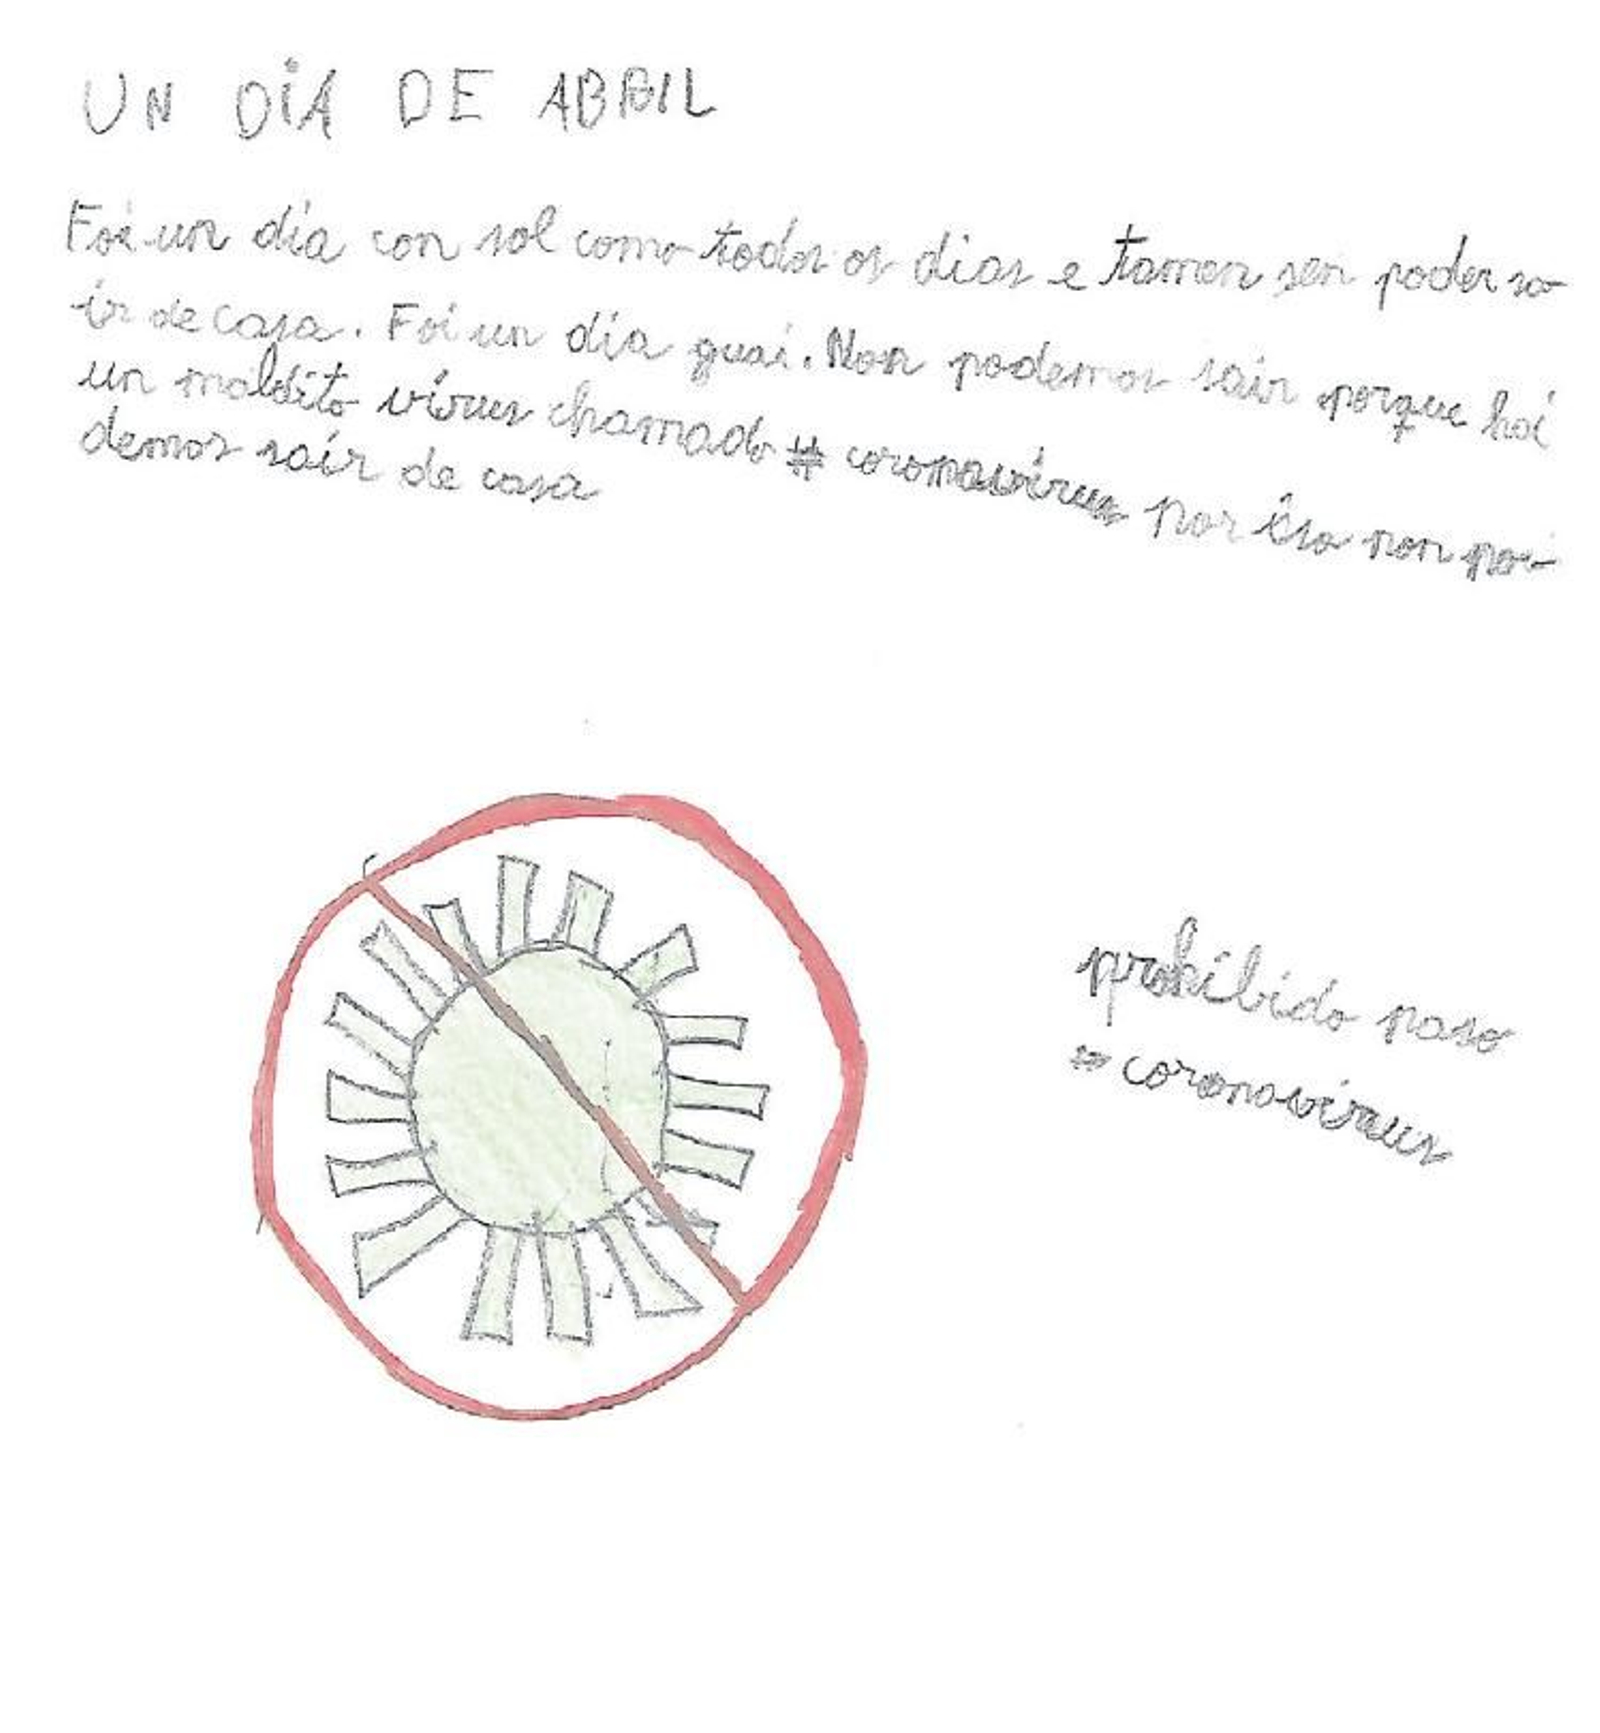 UN DÍA DE ABRIL
Foi un día con sol como todos os dias e tamen sen poder sa-
ír de casa. Foi un día guai. Non podemos sair porque hai
un maldito vírus chamado # coronavírus por iso non po-
demos saír de casa
prohibido paso
# coronavírus